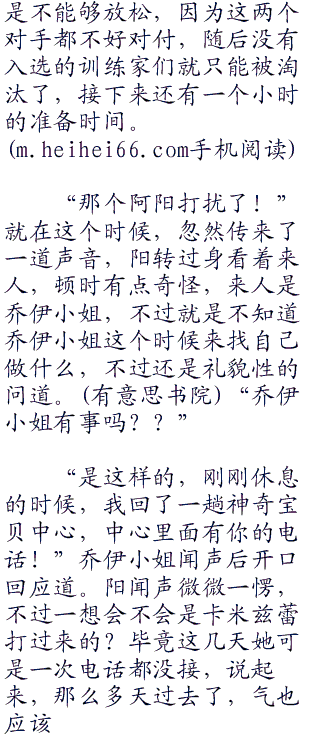 是不能够放松，因为这两个
对手都不好对付，随后没有
入选的训练家们就只能被淘
汰了，接下来还有一个小时
的准备时间。
(m.heihei66.com手机阅读)
“那个阿阳打扰了！”
就在这个时候，忽然传来了
一道声音，阳转过身看着来
人，顿时有点奇怪，来人是
乔伊小姐，不过就是不知道
乔伊小姐这个时候来找自己
做什么，不过还是礼貌性的
问道。(有意思书院)“乔伊
小姐有事吗？？”
“是这样的，刚刚休息
的时候，我回了一趟神奇宝
贝中心，中心里面有你的电
话！”乔伊小姐闻声后开口
回应道。阳闻声微微一愣，
不过一想会不会是卡米兹蕾
打过来的？毕竟这几天她可
是一次电话都没接，说起
来，那么多天过去了，气也
应该